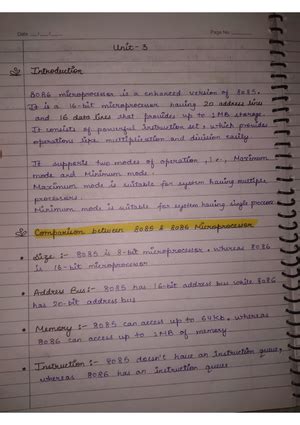 Date ___/___/___ Page No.
Unit - 3
Introduction
8086 microprocessor is a enhanced version of 8085.
It is a 16-bit microprocessor having 20 address lines
and 16 data lines that provides up to 1MB storage.
It consists of powerful instruction set, which provides
operations like multiplication and division easily
It supports two modes of operation, i.e., Maximum
mode and Minimum mode.
Maximum mode is suitable for system having multiple
processors.
Minimum mode is suitable for system having single processor
Comparison between 8085 & 8086 Microprocessor
Size :- 8085 is 8-bit microprocessor, whereas 8086
is 16-bit microprocessor
Address Bus :- 8085 has 16-bit address bus while 8086
has 20-bit address bus
Memory :- 8085 can access up to 64Kb, whereas
8086 can access up to 1MB of memory
Instruction :- 8085 doesn't have an instruction queue,
whereas 8086 has an instruction queue